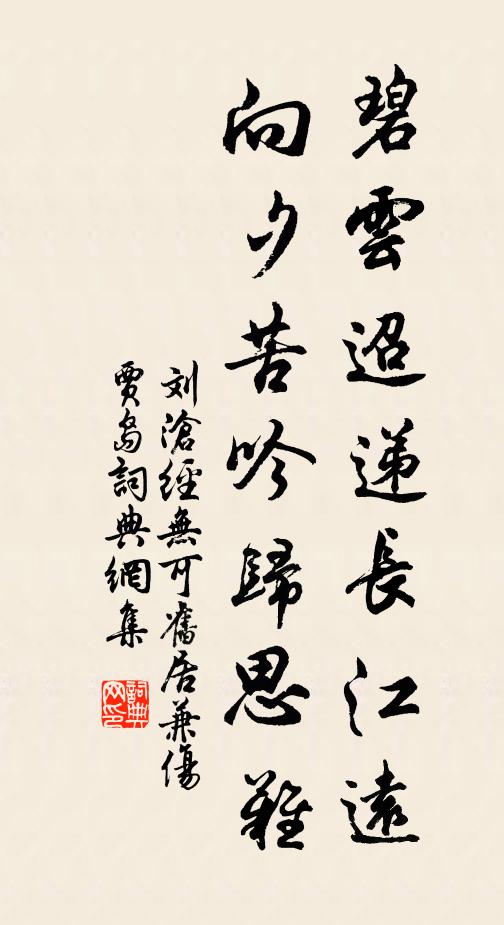 碧雲迢遞長江遠
向夕苦吟歸思難
刘滄經無可舊居兼傷
賈島詞典網集
詞典
网印